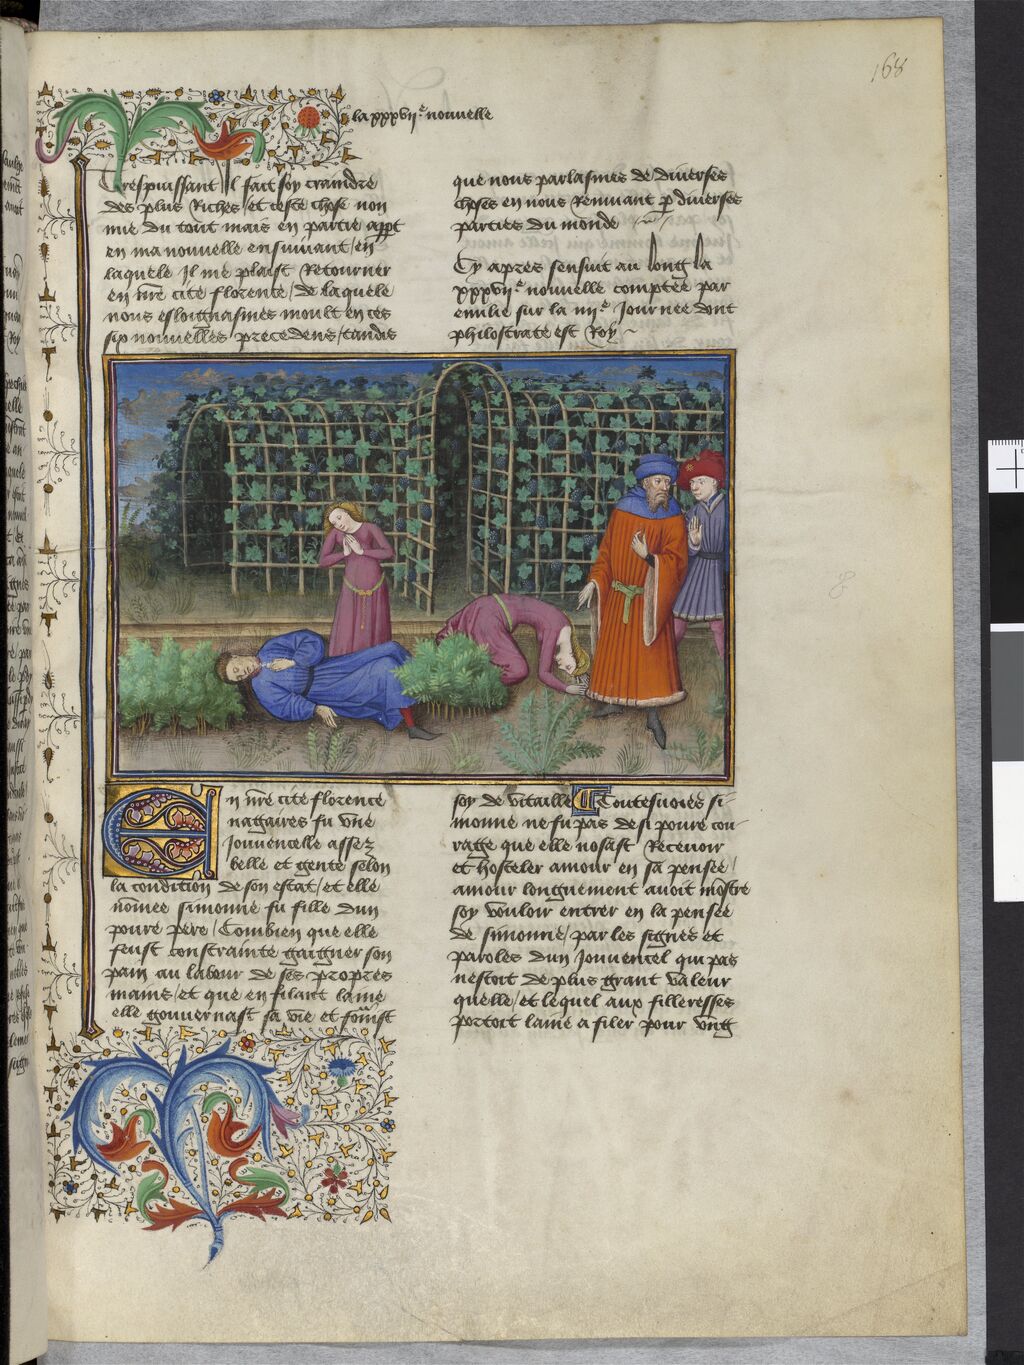 168
la xxxvii.e nouuelle
Trespuissant Il fait soy craindre
des plus Riches et ceste chose non
mie du tout mais en partie appt
en ma nouuelle ensuiuant / en
laquele Il me plaist Retourner
en nre cite florence / de laquele
nous esloignasmes moult en ces
six nouuelles precedens / tandis
que nous parlasmes de diuerses
choses en nous Remuant p diuerses
parties du monde
Cy apres sensuit au long la
xxxvii.e nouuelle comptee par
emilie sur la iiii.e Journee dont
philostrate est Roy
En nre cite florence
nagaires fu vne
Jouuencelle assez
belle et gente selon
la condition de son estat / et elle
nomee simonne fu fille dun
poure pere / Combien que elle
feust constrainte gaigner son
pain au labour de ses propres
mains / et que en filant laine
elle gouuernast sa vie et fonist
soy de vitaille Toutesuoies si-
monne ne fu pas de si poure cou-
rage que elle nosast Receuoir
et hosteler amour en sa pensee /
amour longuement auoit mostre
soy vouloir entrer en la pensee
de simonne / par les signes et
paroles dun Jouuencel qui pas
nestoit de plus grant valeur
quelle / et lequel aux filleresses
portoit laine a filer pour vng